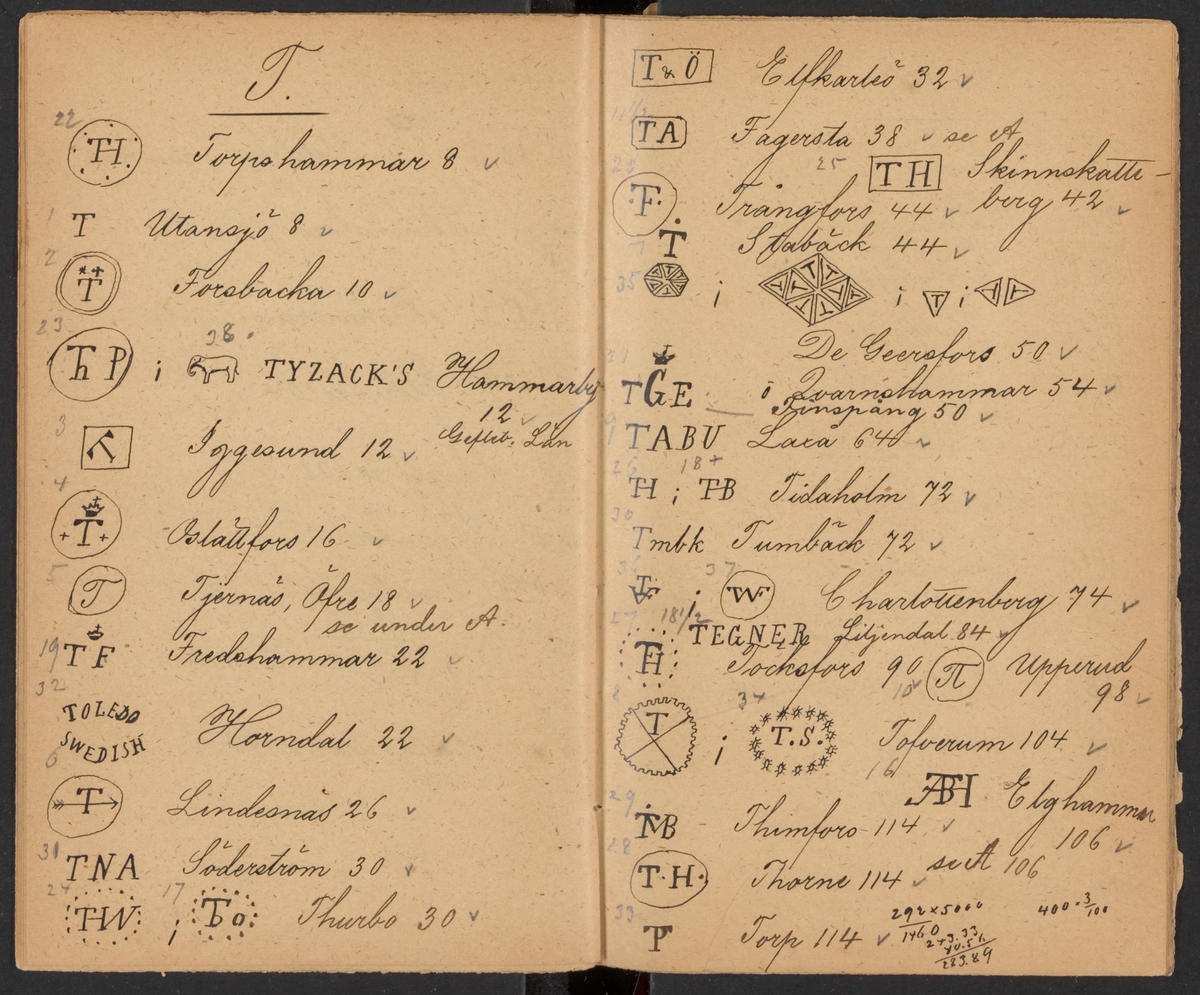 T.
22
TH Torpshammar 8 v
1
T Utansjö 8 v
2
T Forsbacka 10 v
23 38.
ħ P i TYZACK'S Hammarby
12 v
Gefleb. Län
3
Iggesund 12 v
4
+T+ Oslättfors 16 v
5
T Tjernäs, Öfre 18 v
se under A.
19
T F Fredshammar 22 v
32
TOLEDO
SWEDISH Horndal 22 v
6
T Lindesnäs 26 v
31
TNA Söderström 30 v
24 17
TW i To Thurbo 30 v
T & Ö Elfkarleö 32 v
11 1/2
TA Fagersta 38 v se A
22 25
TH Skinnskatte-
berg 42 v
T Trångfors 44 v
7
T Stabäck 44 v
35
T i T i T i T
De Geersfors 50 v
21
TGE i Qvarnshammar 54 v
Finspång 50 v
9
TABU Laxå 64 v
26 18+
TH i TB Tidaholm 72 v
30
Tmbk Tumbäck 72 v
37
i W Charlottenberg 74 v
27 18 1/2
TEGNER Liljendal 84 v
TH Töcksfors 90 v
10
П Upperud
98 v
8 34
T i T.S. Tofverum 104 v
16
ÆBH Elghammar
106 v
29
TMB Thimfors 114 v
se A 106
28
T.H. Thorne 114 v
33
P Torp 114 v
292 x 5000
1460
243.33
40.56
283.89
400 · 3/100